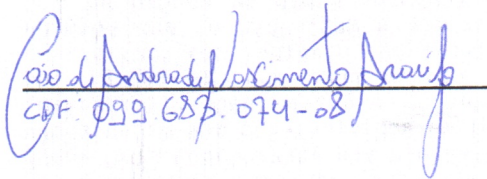 Caio de Andrade Nascimento Araújo
CPF: 099.687.074-08